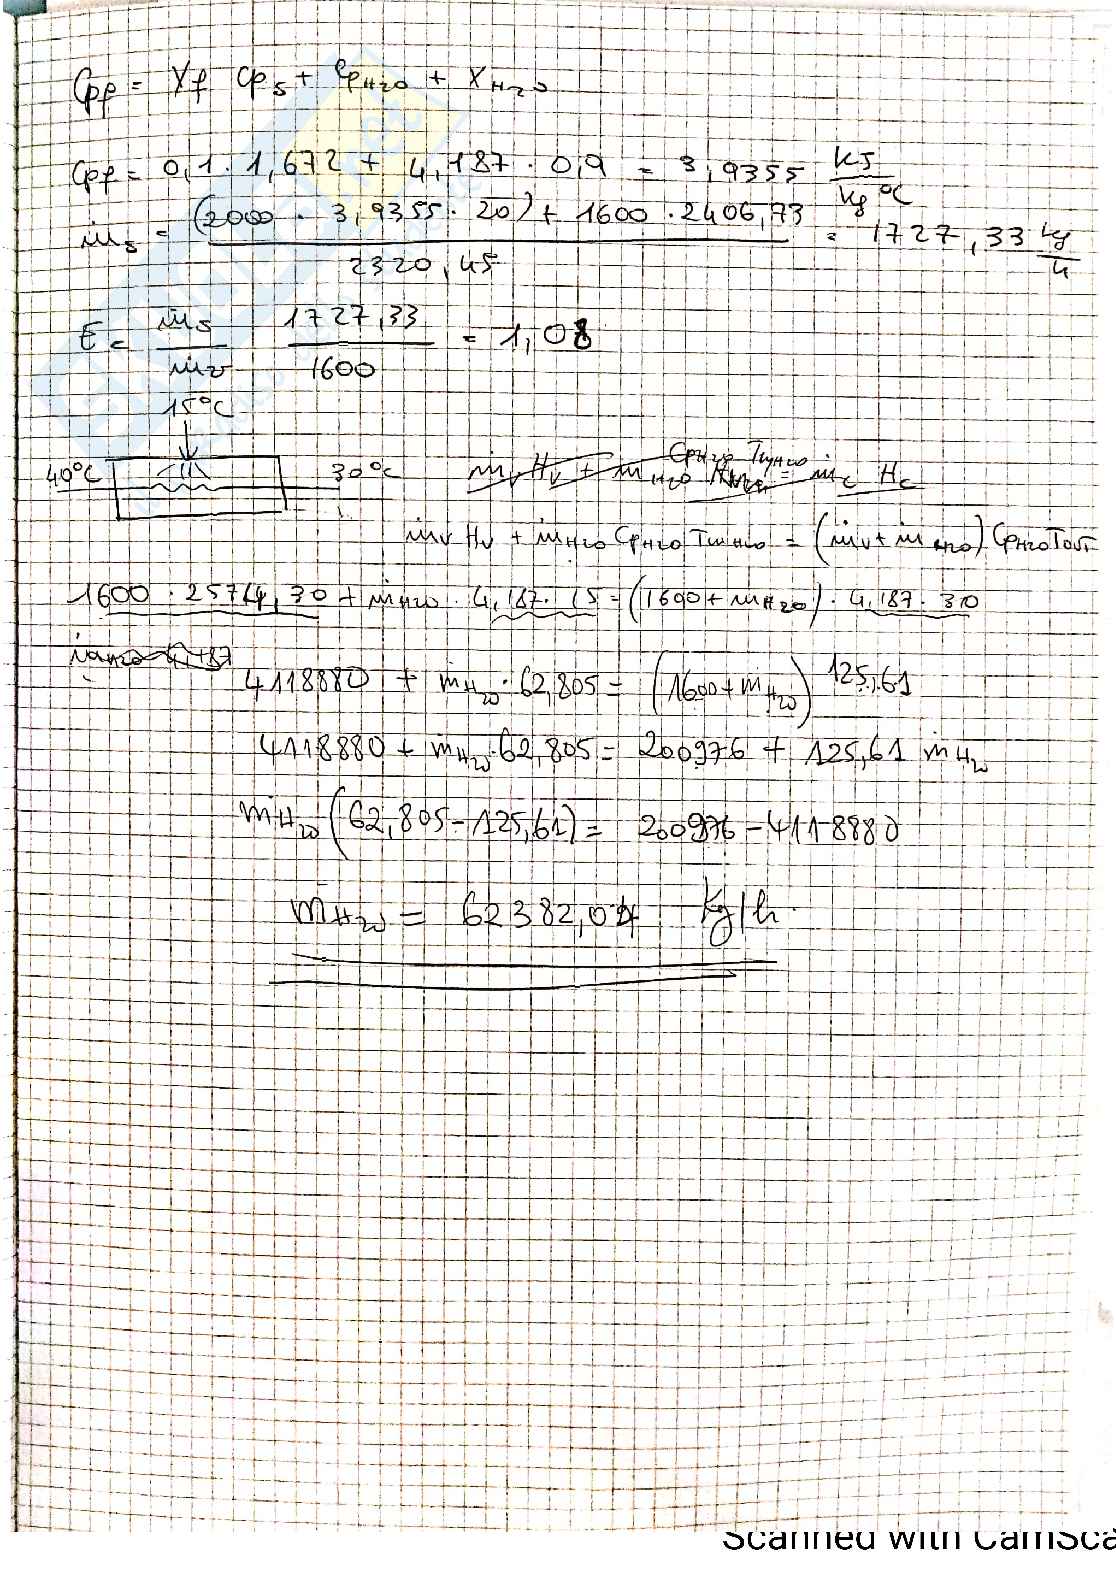 Cpf = Xf Cps + CpH2O + XH2O
Cpf = 0,1 · 1,672 + 4,187 · 0,9 = 3,9355 KJ/kg°C
ṁs = (2000 · 3,9355 · 20) + 1600 · 2406,73 / 2320,45 = 1727,33 kg/h
E = ṁs/ṁv 1727,33/1600 = 1,08
15°C
40°C 30°C
ṁv Hv + ṁH2O CpH2O TinH2O = ṁc Hc
ṁv Hv + ṁH2O CpH2O TinH2O = (ṁv + ṁH2O) CpH2O Tout
1600 · 2574,30 + ṁH2O · 4,187 · 15 = (1600 + ṁH2O) · 4,187 · 30
4118880 + ṁH2O · 62,805 = (1600 + ṁH2O) 125,61
4118880 + ṁH2O · 62,805 = 200976 + 125,61 ṁH2O
ṁH2O (62,805 - 125,61) = 200976 - 4118880
ṁH2O = 62382,04 Kg/h
Scanned with CamSca